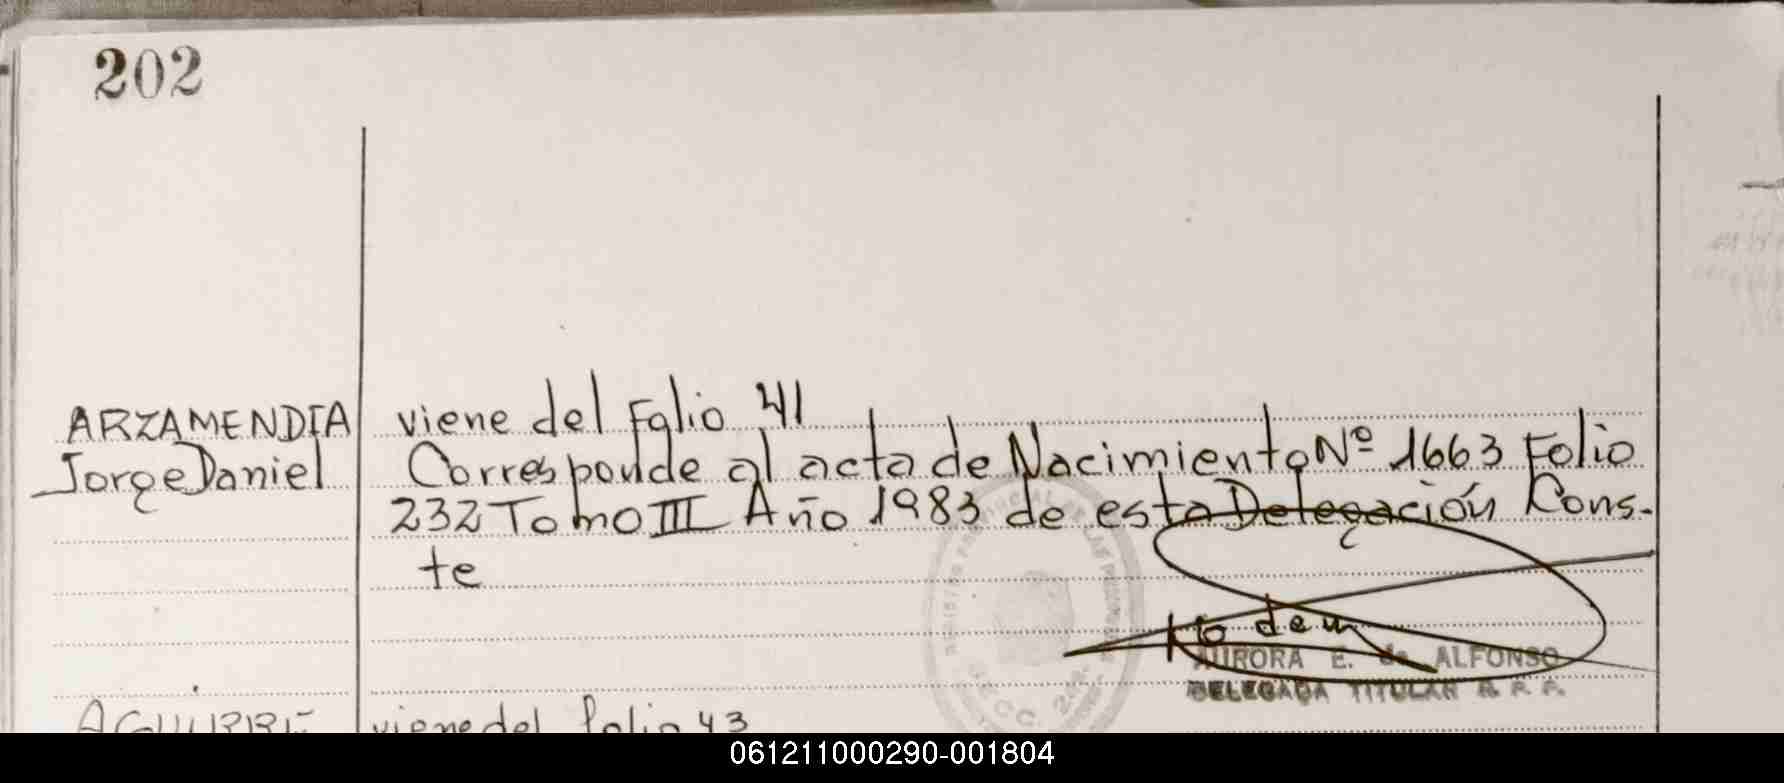 202
ARZAMENDIA
Jorge Daniel
viene del Folio 41
Corresponde al acta de Nacimiento Nº 1663 Folio
232 Tomo III Año 1983 de esta Delegación Cons-
te
AURORA E. de ALFONSO
DELEGADA TITULAR R. P. P.
AGUIRRE
viene del folio 43
061211000290-001804